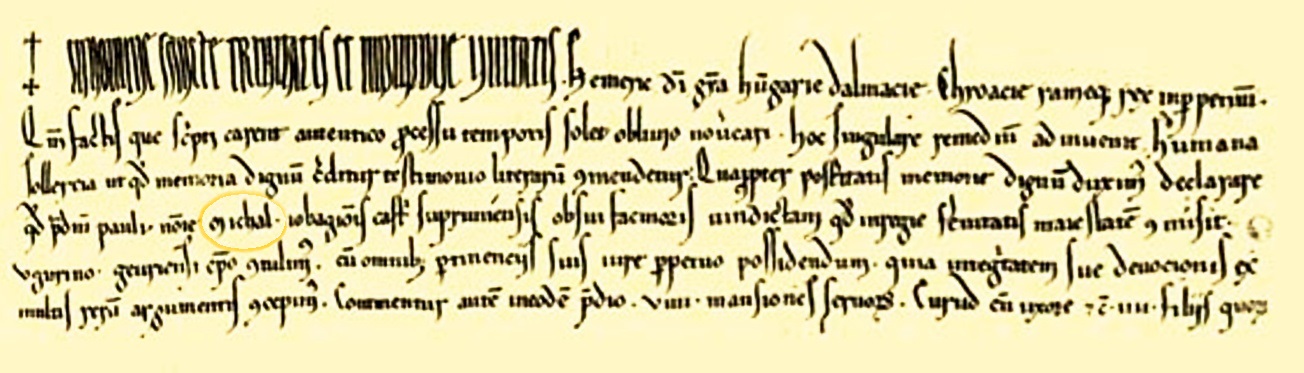 IN NOMINE SANCTE TRINITATIS ET INDIVIDUE UNITATIS. Hemericus dī gr̄a hūgarie dalmacie. Chroacie rameq; rex inp̱petuū.
Qm̄ factis que sc̄pti carent autentico p̱cessu temporis solet oblivio novercari. hoc singulare remediū adinvenit humana
sollercia ut qd̄ memoria dignū creditur testimonio literarū ꝯmendetur. Quap̱pter posteritatis memorie dignū duxim᷒ declarare
qd̄ p̄diū pauli. nōīe michal. iobagiōīs castri supruniensis obsui facinoris vindictam qd̄ inregie serenitatis maiestatē ꝯmisit.
vgrino. geuriensi ep̄o ꝯtulim᷒. cū omnib; ptinenciis suis iure p̱petuo possidendum. quia integritatem sue devocionis ex
multis rerū argumentis ꝯcepim᷒. Continentur autē ineodē p̄dio. viiii. mansiones servorꝝ. Curud cū uxore ⁊ c̄ iiii. filiis